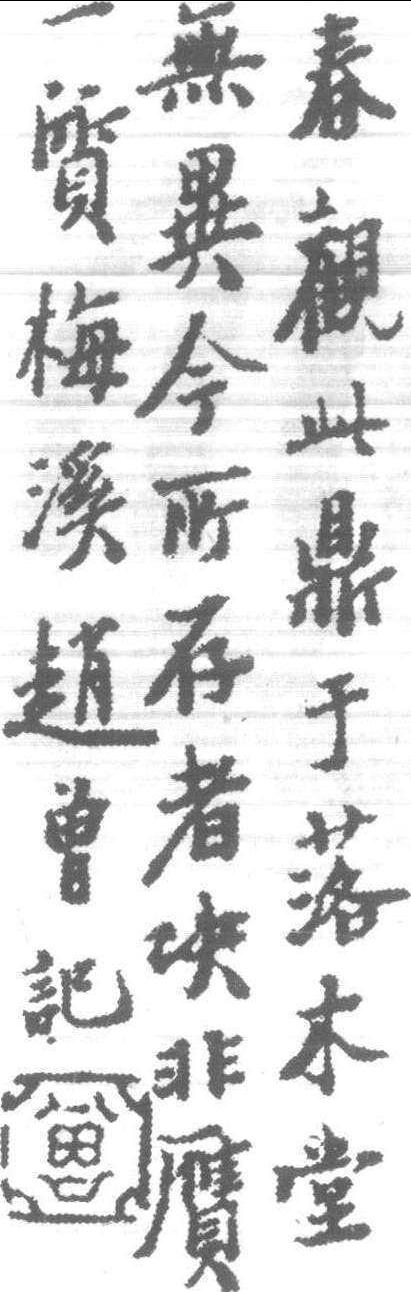 春觀此鼎于落木堂
無異今所存者決非贗
一質梅溪趙曾記
曾